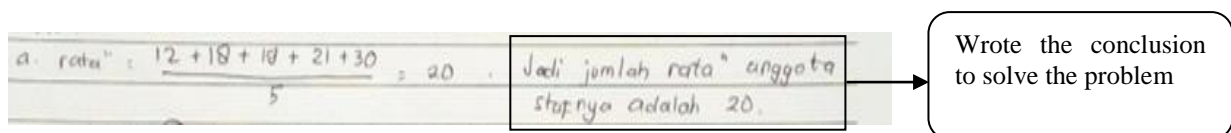 a. rata" = 12 + 18 + + 21 + 30 = 20 .
5
Jadi jumlah rata" anggota
stapnya adalah 20.
Wrote the conclusion
to solve the problem